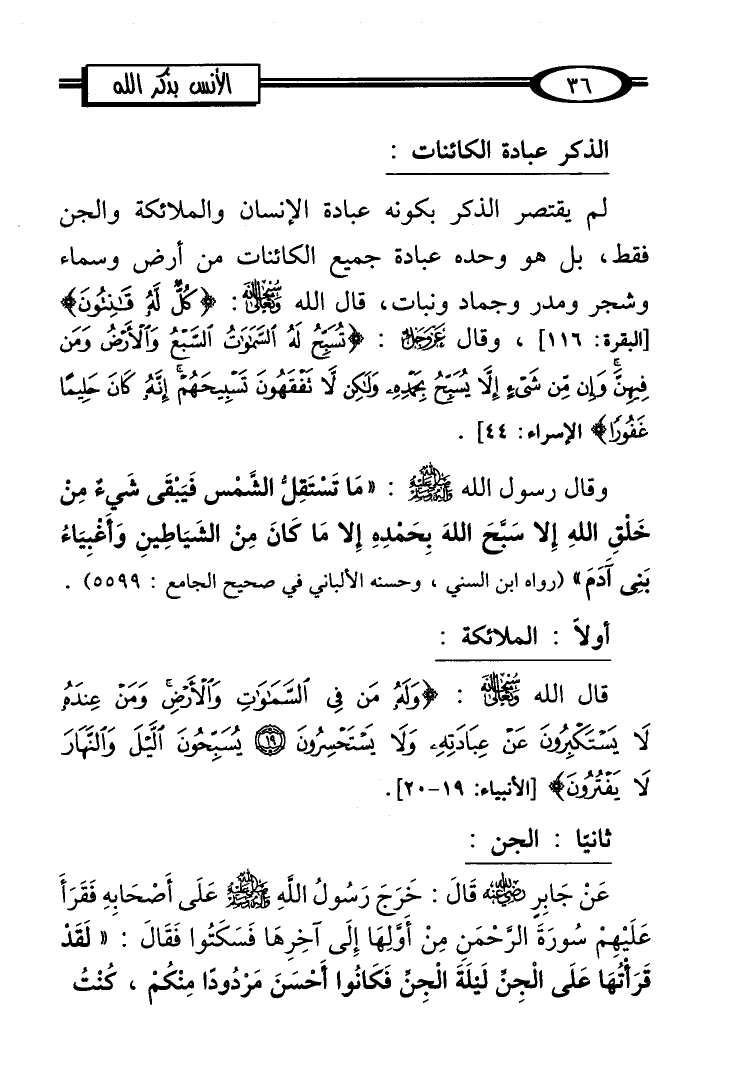 ٣٦
الأنس بذكر الله
الذكر عبادة الكائنات :
لم يقتصر الذكر بكونه عبادة الإنسان والملائكة والجن
فقط، بل هو وحده عبادة جميع الكائنات من أرض وسماء
وشجر ومدر وجماد ونبات، قال الله سبحانه وتعالى : ﴿كُلٌّ لَّهُ قَٰنِتُونَ﴾
[البقرة: ١١٦] ، وقال عز وجل : ﴿تُسَبِّحُ لَهُ السَّمَٰوَٰتُ السَّبْعُ وَالْأَرْضُ وَمَن
فِيهِنَّ ۚ وَإِن مِّن شَىْءٍ إِلَّا يُسَبِّحُ بِحَمْدِهِۦ وَلَٰكِن لَّا تَفْقَهُونَ تَسْبِيحَهُمْ ۗ إِنَّهُۥ كَانَ حَلِيمًا
غَفُورًا﴾ الإسراء: ٤٤] .
وقال رسول الله ﷺ : «مَا تَسْتَقِلُّ الشَّمْس فَيَبْقَى شَيءٌ مِنْ
خَلْقِ اللهِ إِلا سَبَّحَ اللهَ بِحَمْدِهِ إِلا مَا كَانَ مِنْ الشَيَاطِينِ وَأَغْبِيَاءُ
بَنِى آدَمَ» (رواه ابن السني ، وحسنه الألباني في صحيح الجامع : ٥٥٩٩) .
أولاً : الملائكة :
قال الله سبحانه وتعالى : ﴿وَلَهُۥ مَن فِى السَّمَٰوَٰتِ وَالْأَرْضِ ۚ وَمَنْ عِندَهُۥ
لَا يَسْتَكْبِرُونَ عَنْ عِبَادَتِهِۦ وَلَا يَسْتَحْسِرُونَ ١٩ يُسَبِّحُونَ الَّيْلَ وَالنَّهَارَ
لَا يَفْتُرُونَ﴾ [الأنبياء: ١٩-٢٠].
ثانيًا : الجن :
عَنْ جَابِرٍ رضي الله عنه قَالَ : خَرَجَ رَسُولُ اللَّهِ ﷺ عَلَى أَصْحَابِهِ فَقَرَأَ
عَلَيْهِمْ سُورَةَ الرَّحْمَنِ مِنْ أَوَّلِهَا إِلَى آخِرِهَا فَسَكَتُوا فَقَالَ : « لَقَدْ
قَرَأْتُهَا عَلَى الْجِنِّ لَيْلَةَ الْجِنِّ فَكَانُوا أَحْسَنَ مَرْدُودًا مِنْكُمْ ، كُنْتُ